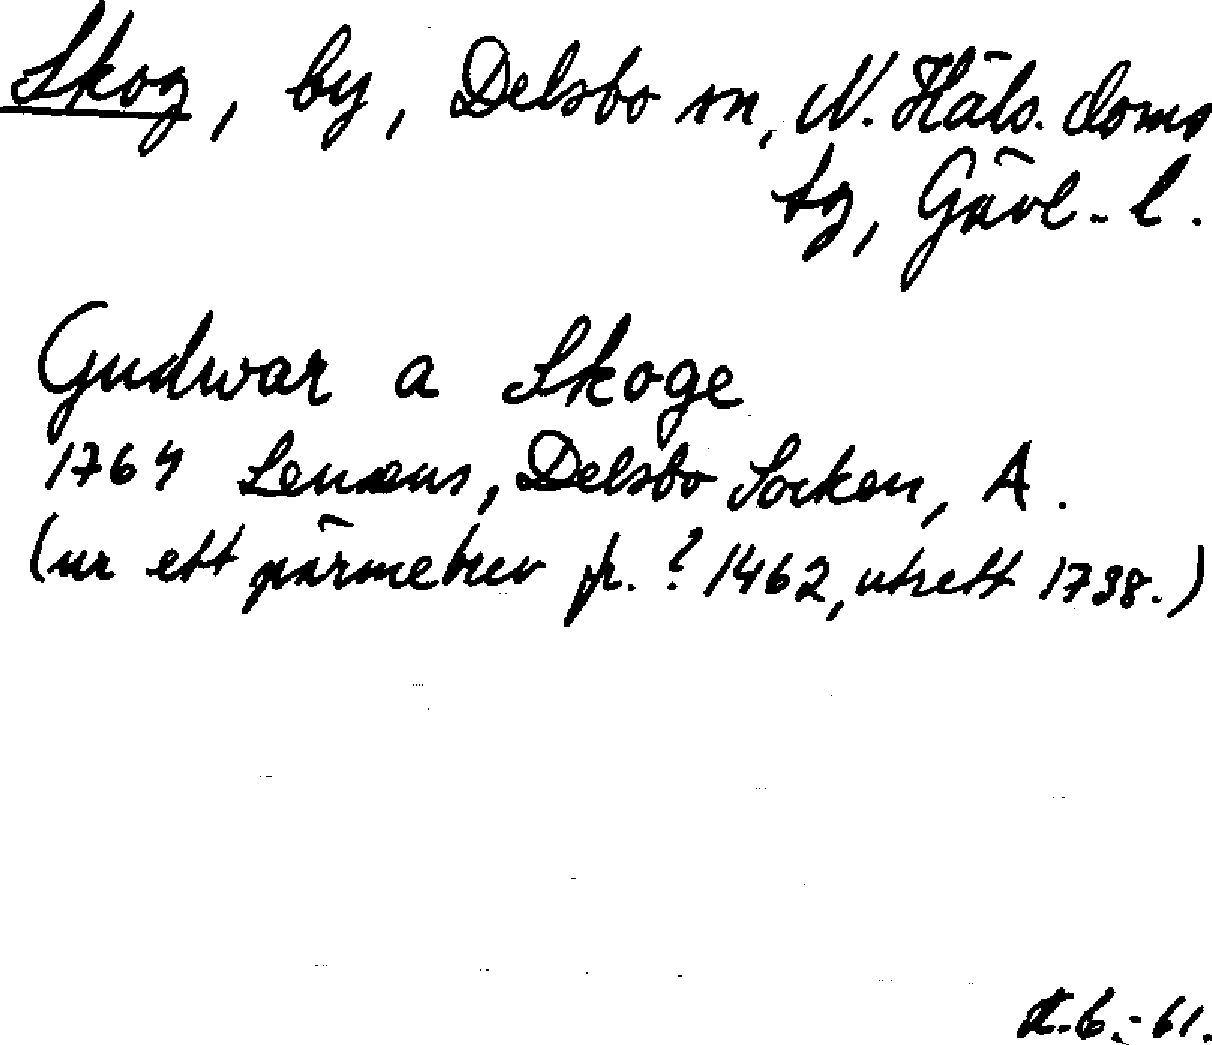 Skog, by, Delsbo sn, N. Häls. doms
tg, Gävl.. l.
Gudwar a Skoge
1764 Lenæus, Delsbo Socken, A.
(ur ett pärmebrev fr. ? 1462, utrett 1738.)
6.-61.